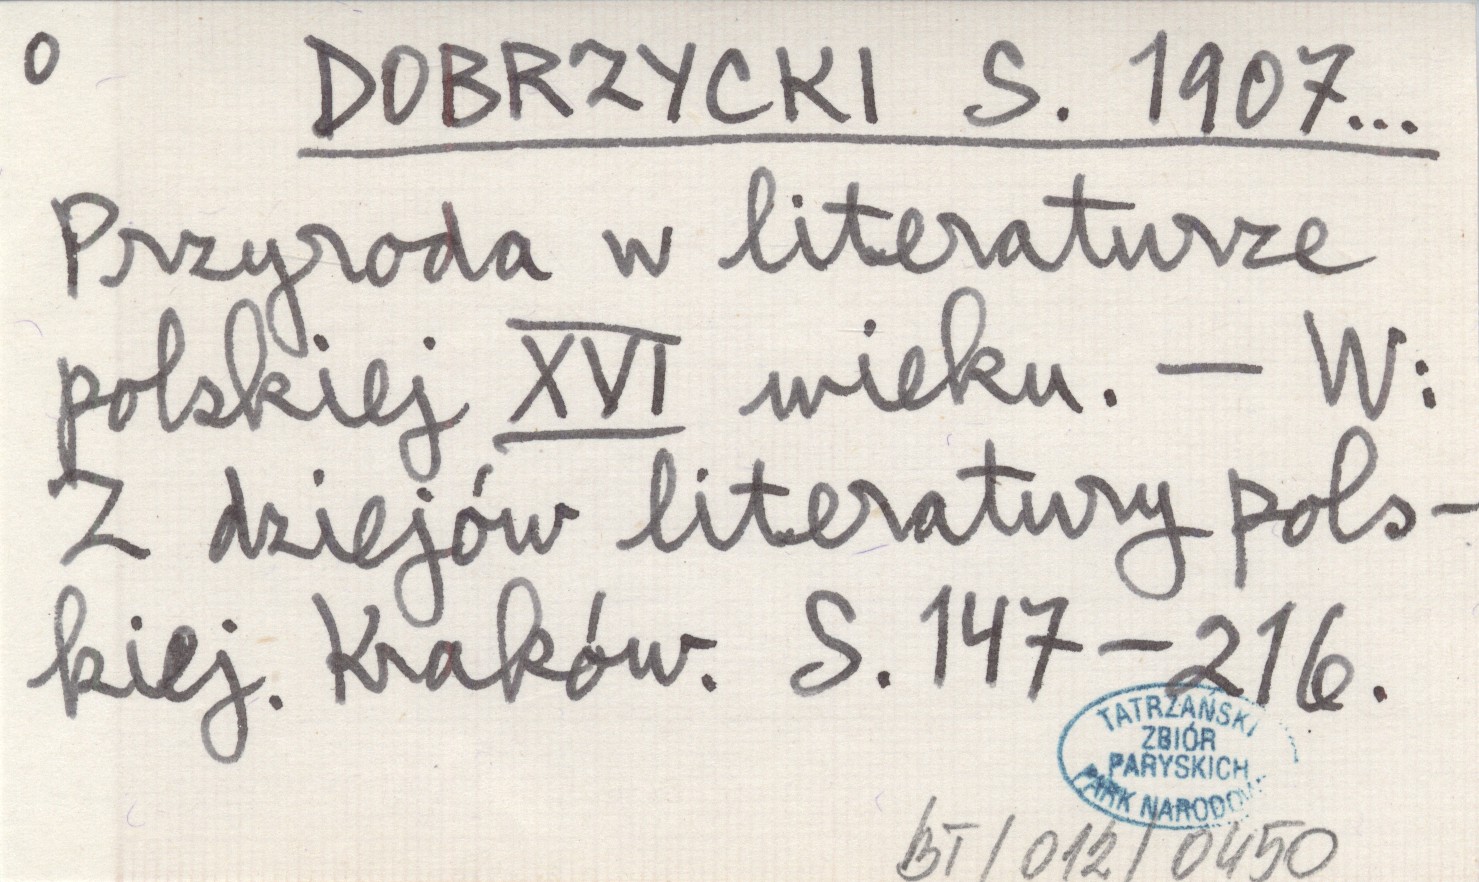 O
DOBRZYCKI S. 1907...
Przyroda w literaturze
polskiej XVI wieku. — W:
Z dziejów literatury pols-
kiej. Kraków. S. 147-216.
TATRZAŃSKI
ZBIÓR
PARYSKICH
PARK NARODOW
BT/012/0450